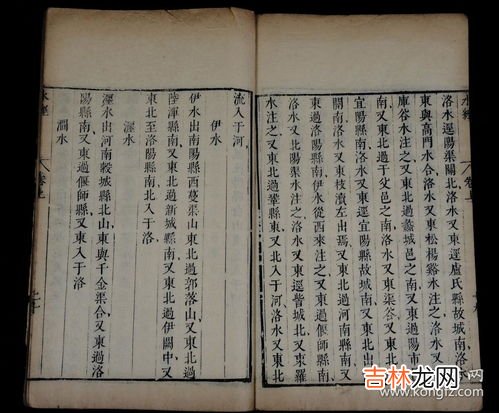 水經
卷上
洛水逕陽渠關北洛水又東逕盧氏縣故城南洛水
東與高門水合洛水又東松楊谿水注之洛水又東
庫谷水注之又東北過蠡城邑之南又東過陽市
南又東北過于父邑之南洛水又東渠谷水注之又東
宜陽縣南洛水又東逕宜陽縣故城南又東北出散
關南洛水又東枝瀆左出焉又東北過河南縣南又
東過洛陽縣南伊水從西來注之又東過偃師縣南
洛水又北陽渠水注之又東逕訾城北又東羅
水注之又東北過鞏縣東又北入于河洛水又東北
流入于河
伊水
伊水出南陽縣西蔓渠山東北過郭落山又東北過
陸渾縣南又東北過新城縣南又東北過伊闕中又
東北至洛陽縣南北入于洛
瀍水
瀍水出河南榖城縣北山東與千金渠合又東過洛
陽縣南又東過偃師縣又東入于洛
澗水
水經
卷上
吉林龙网
www.kongfz.com